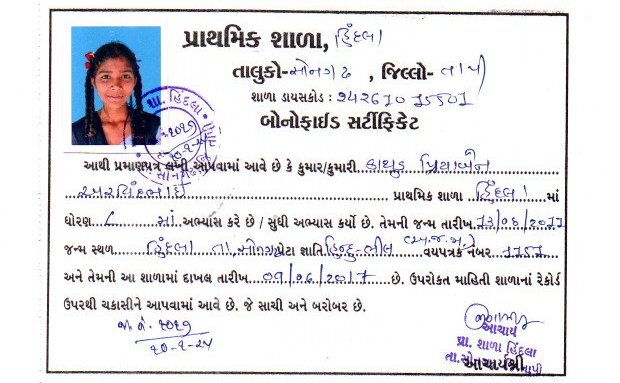 પ્રાથમિક શાળા, હિંદલા
તાલુકો- સોનગઢ , જિલ્લો- તાપી
શાળા ડાયસકોડ : 24261015501
બોનોફાઈડ સર્ટીફિકેટ
આથી પ્રમાણપત્ર લખી આપવામાં આવે છે કે કુમાર/કુમારી કાથુડ પ્રિયાબેન
અરવિંદભાઈ પ્રાથમિક શાળા હિંદલા માં
ધોરણ ૮ માં અભ્યાસ કરે છે / સુધી અભ્યાસ કર્યો છે. તેમની જન્મ તારીખ 13/08/2011
જન્મ સ્થળ હિંદલા તા. સોનગઢ પેટા જ્ઞાતિ હિન્દુ-ભીલ (અ.જ.જા.) વયપત્રક નંબર 1151
અને તેમની આ શાળામાં દાખલ તારીખ 09/06/2017 છે. ઉપરોકત માહિતી શાળાનાં રેકોર્ડ
ઉપરથી ચકાસીને આપવામાં આવે છે. જે સાચી અને બરોબર છે.
જા.નં. ૨૦૨૭
૨૦-૧-૨૫
આચાર્ય
પ્રા. શાળા હિંદલા
તા. સો તાપી
આચાર્યશ્રી